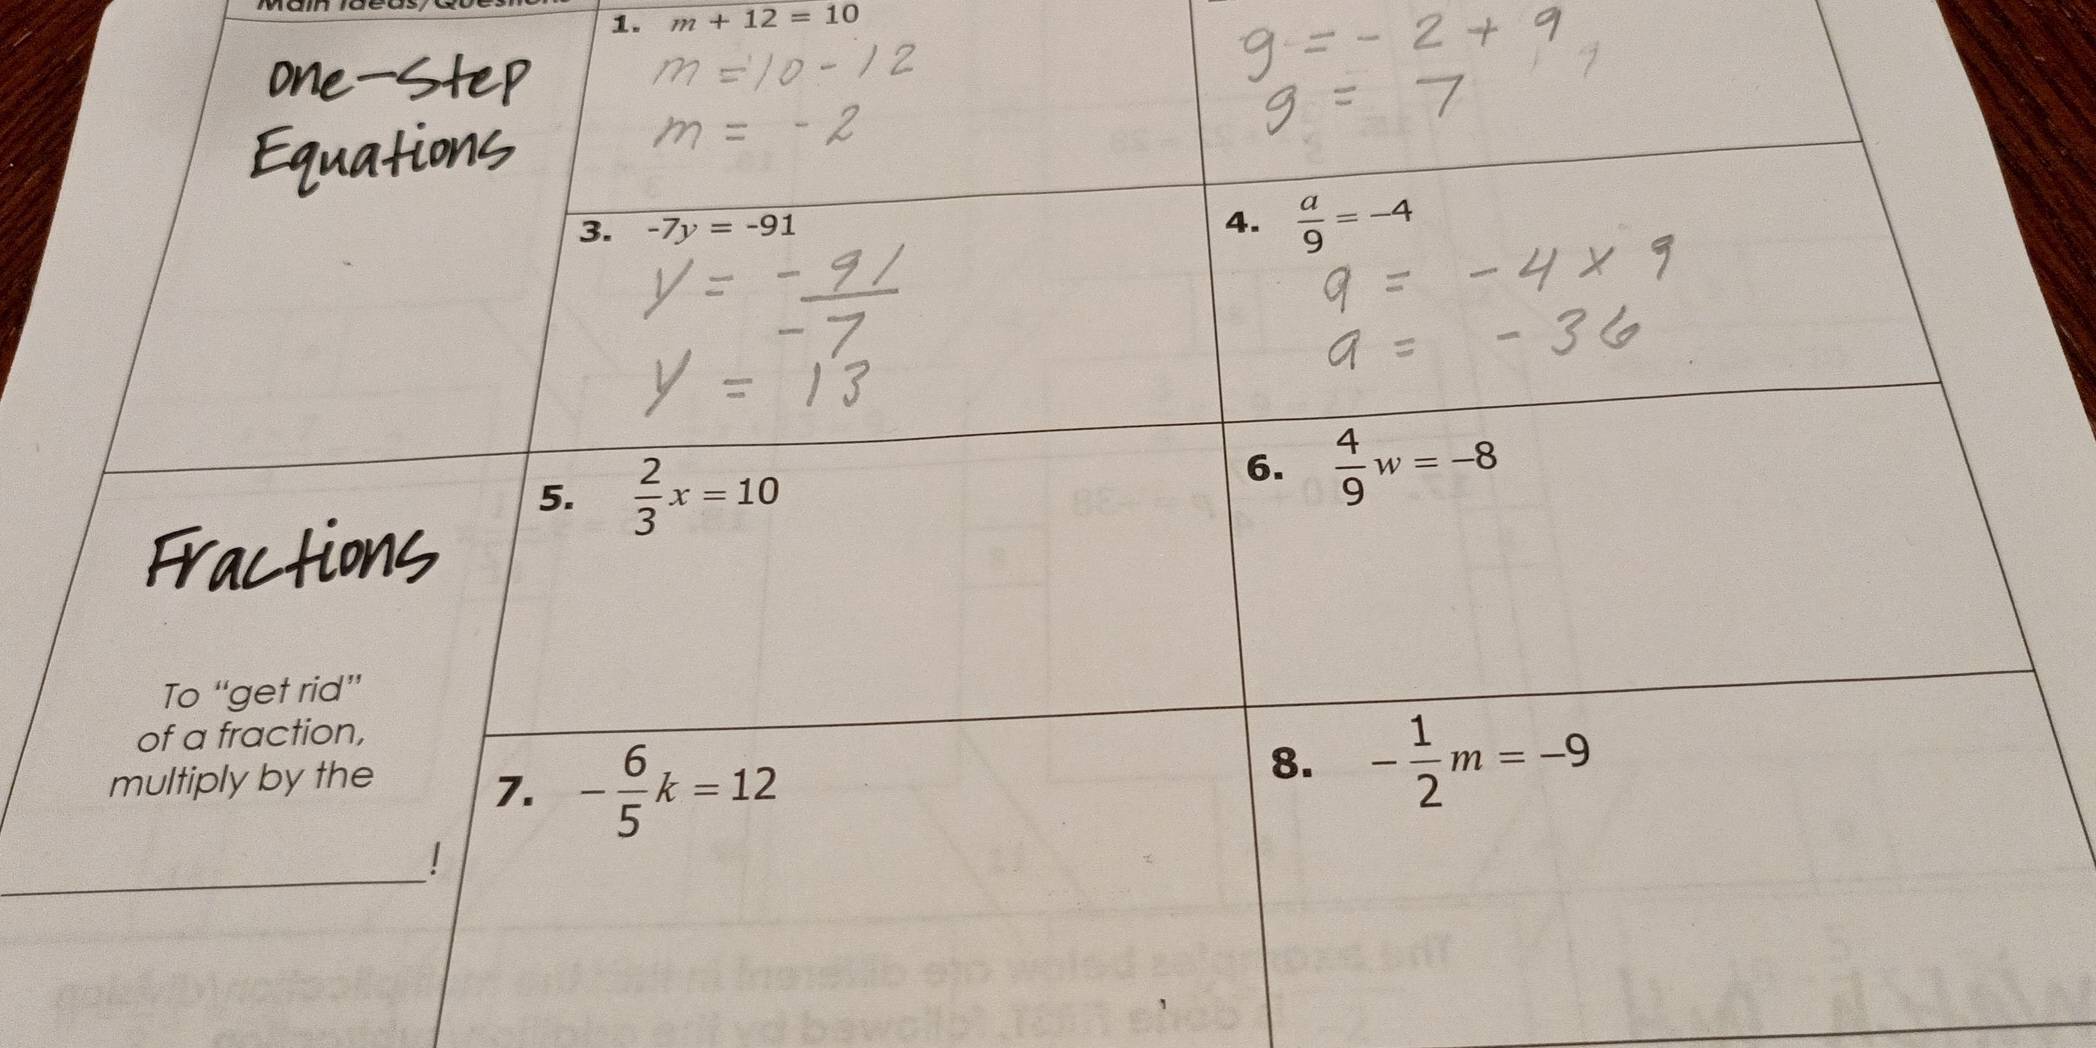 1. m + 12 = 10
m = 10 - 12
m = - 2
g = - 2 + 9
g = 7
One-Step
Equations
3. -7y = -91
y = -91/-7
y = 13
4. a/9 = -4
a = -4 × 9
a = -36
Fractions
To “get rid”
of a fraction,
multiply by the
!
5. 2/3 x = 10
6. 4/9 w = -8
7. -6/5 k = 12
8. -1/2 m = -9